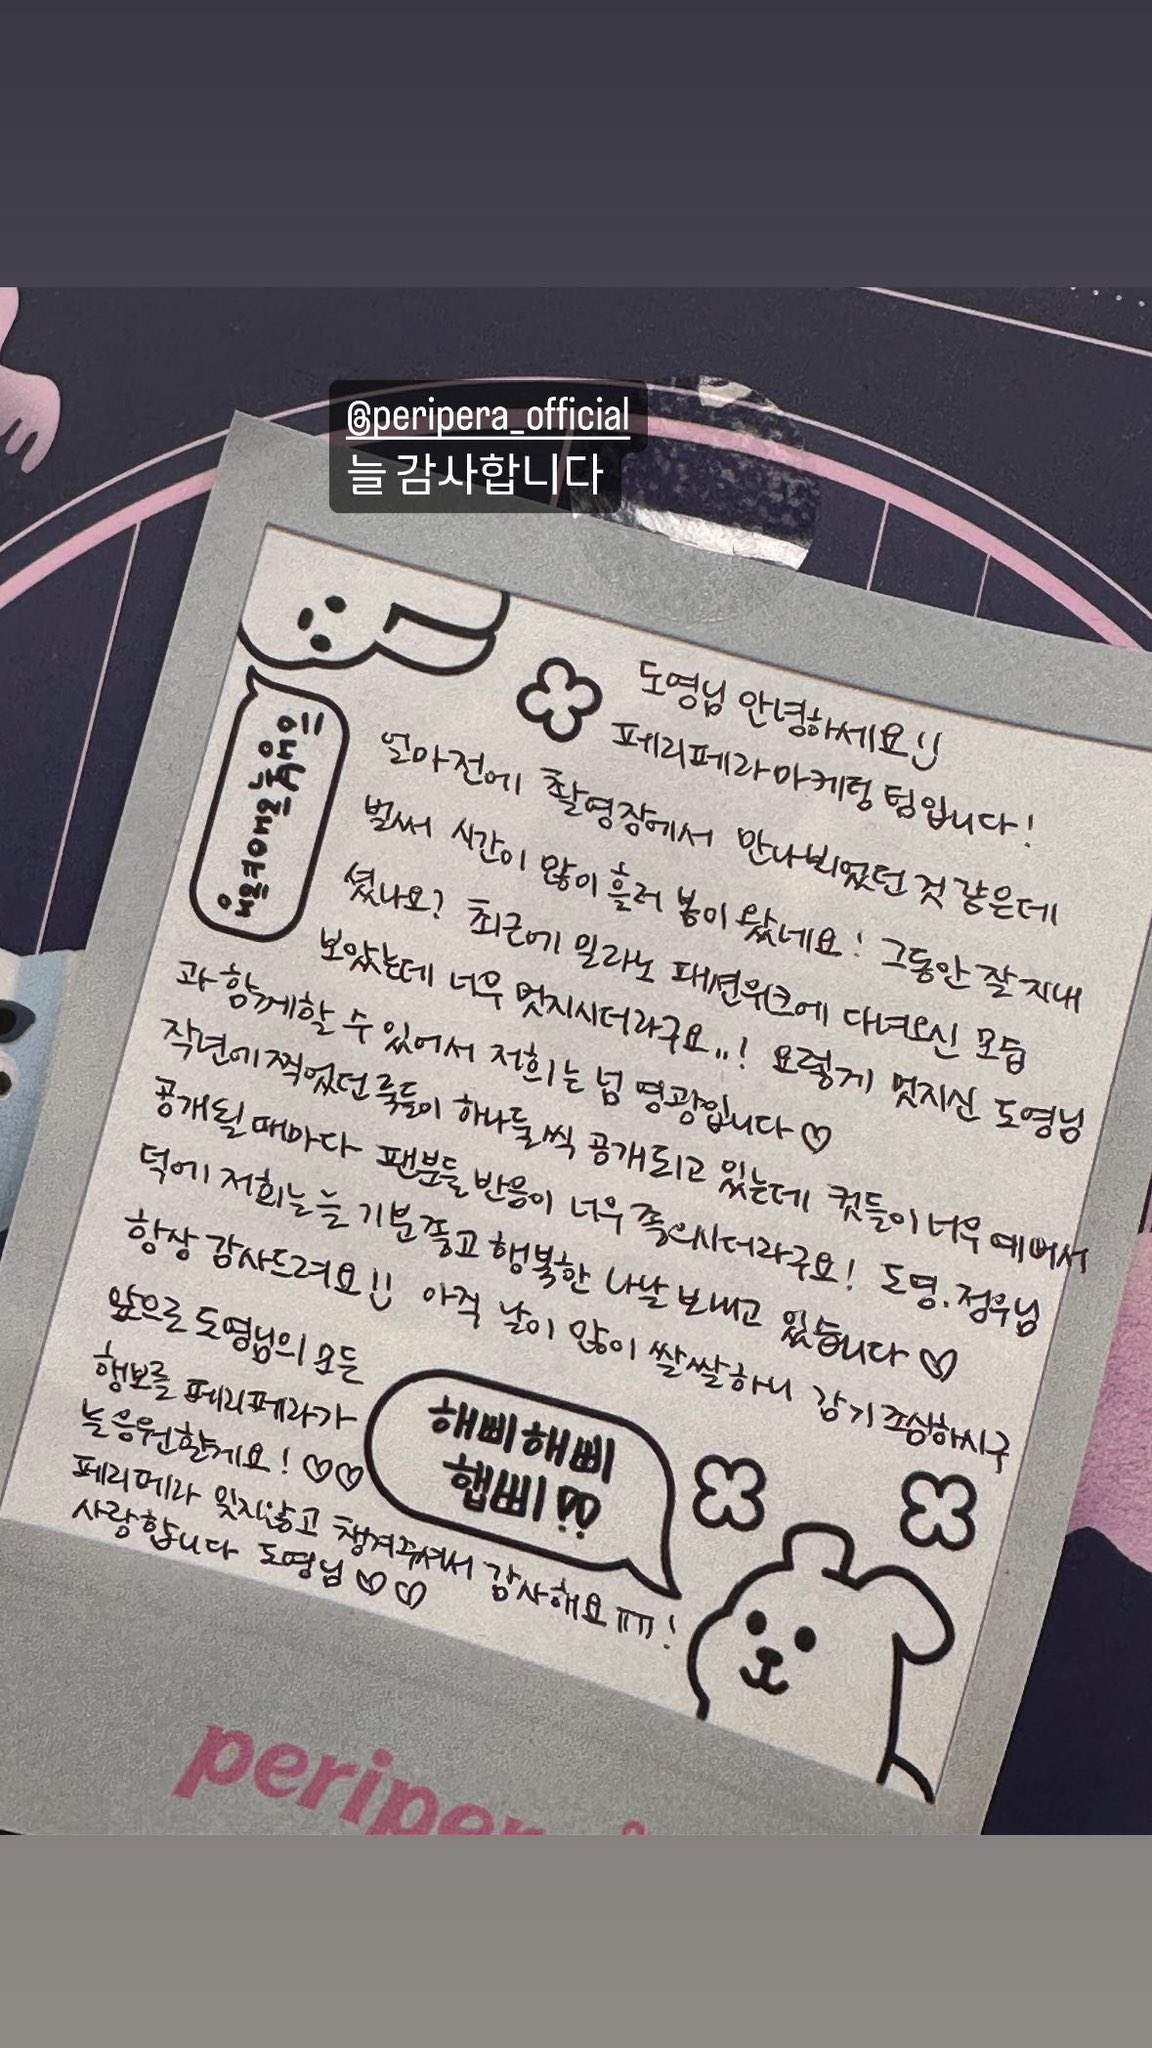 @peripera_official
늘 감사합니다
도영님 안녕하세요!!
페리페라 마케팅 팀입니다!
얼마전에 촬영장에서 만나뵈었던 것 같은데
벌써 시간이 많이 흘러 봄이 왔네요! 그동안 잘 지내
셨나요? 최근에 밀라노 패션위크에 다녀오신 모습
보았는데 너무 멋지시더라구요..! 요렇게 멋지신 도영님
과 함께할 수 있어서 저희는 넘 영광입니다♡
작년에 찍었던 룩들이 하나둘씩 공개되고 있는데 컷들이 너무 예뻐서
공개될 때마다 팬분들 반응이 너무 폭발시더라구요! 도영.정우님
덕에 저희는 늘 기분좋고 행복한 나날 보내고 있습니다♡
항상 감사드려요!! 아직 날이 많이 쌀쌀하니 감기조심하시구
앞으로 도영님의 모든
행보를 페리페라가
늘 응원할게요! ♡♡
페리페라 잊지않고 챙겨주셔서 감사해요ㅠㅠ!
사랑합니다 도영님♡♡
해삐해삐
햅삐!!